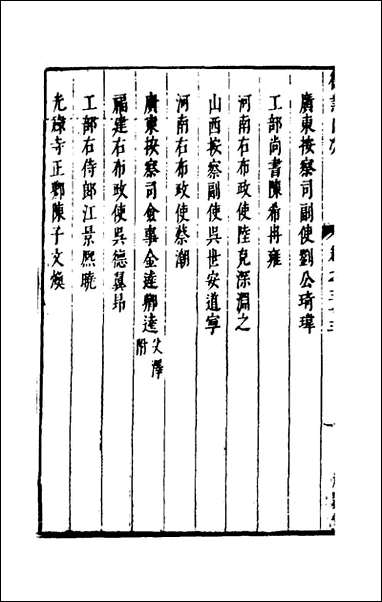 廣東按察司副使劉公琦瑋
工部尚書陳希冉雍
河南右布政使陸克深淵之
山西按察副使吳世安道寧
河南右布政使蔡潮
廣東按察司僉事金達卿逵父澤附
福建右布政使吳德翼昂
工部右侍郎江景熙曉
光祿寺正卿陳子文煥